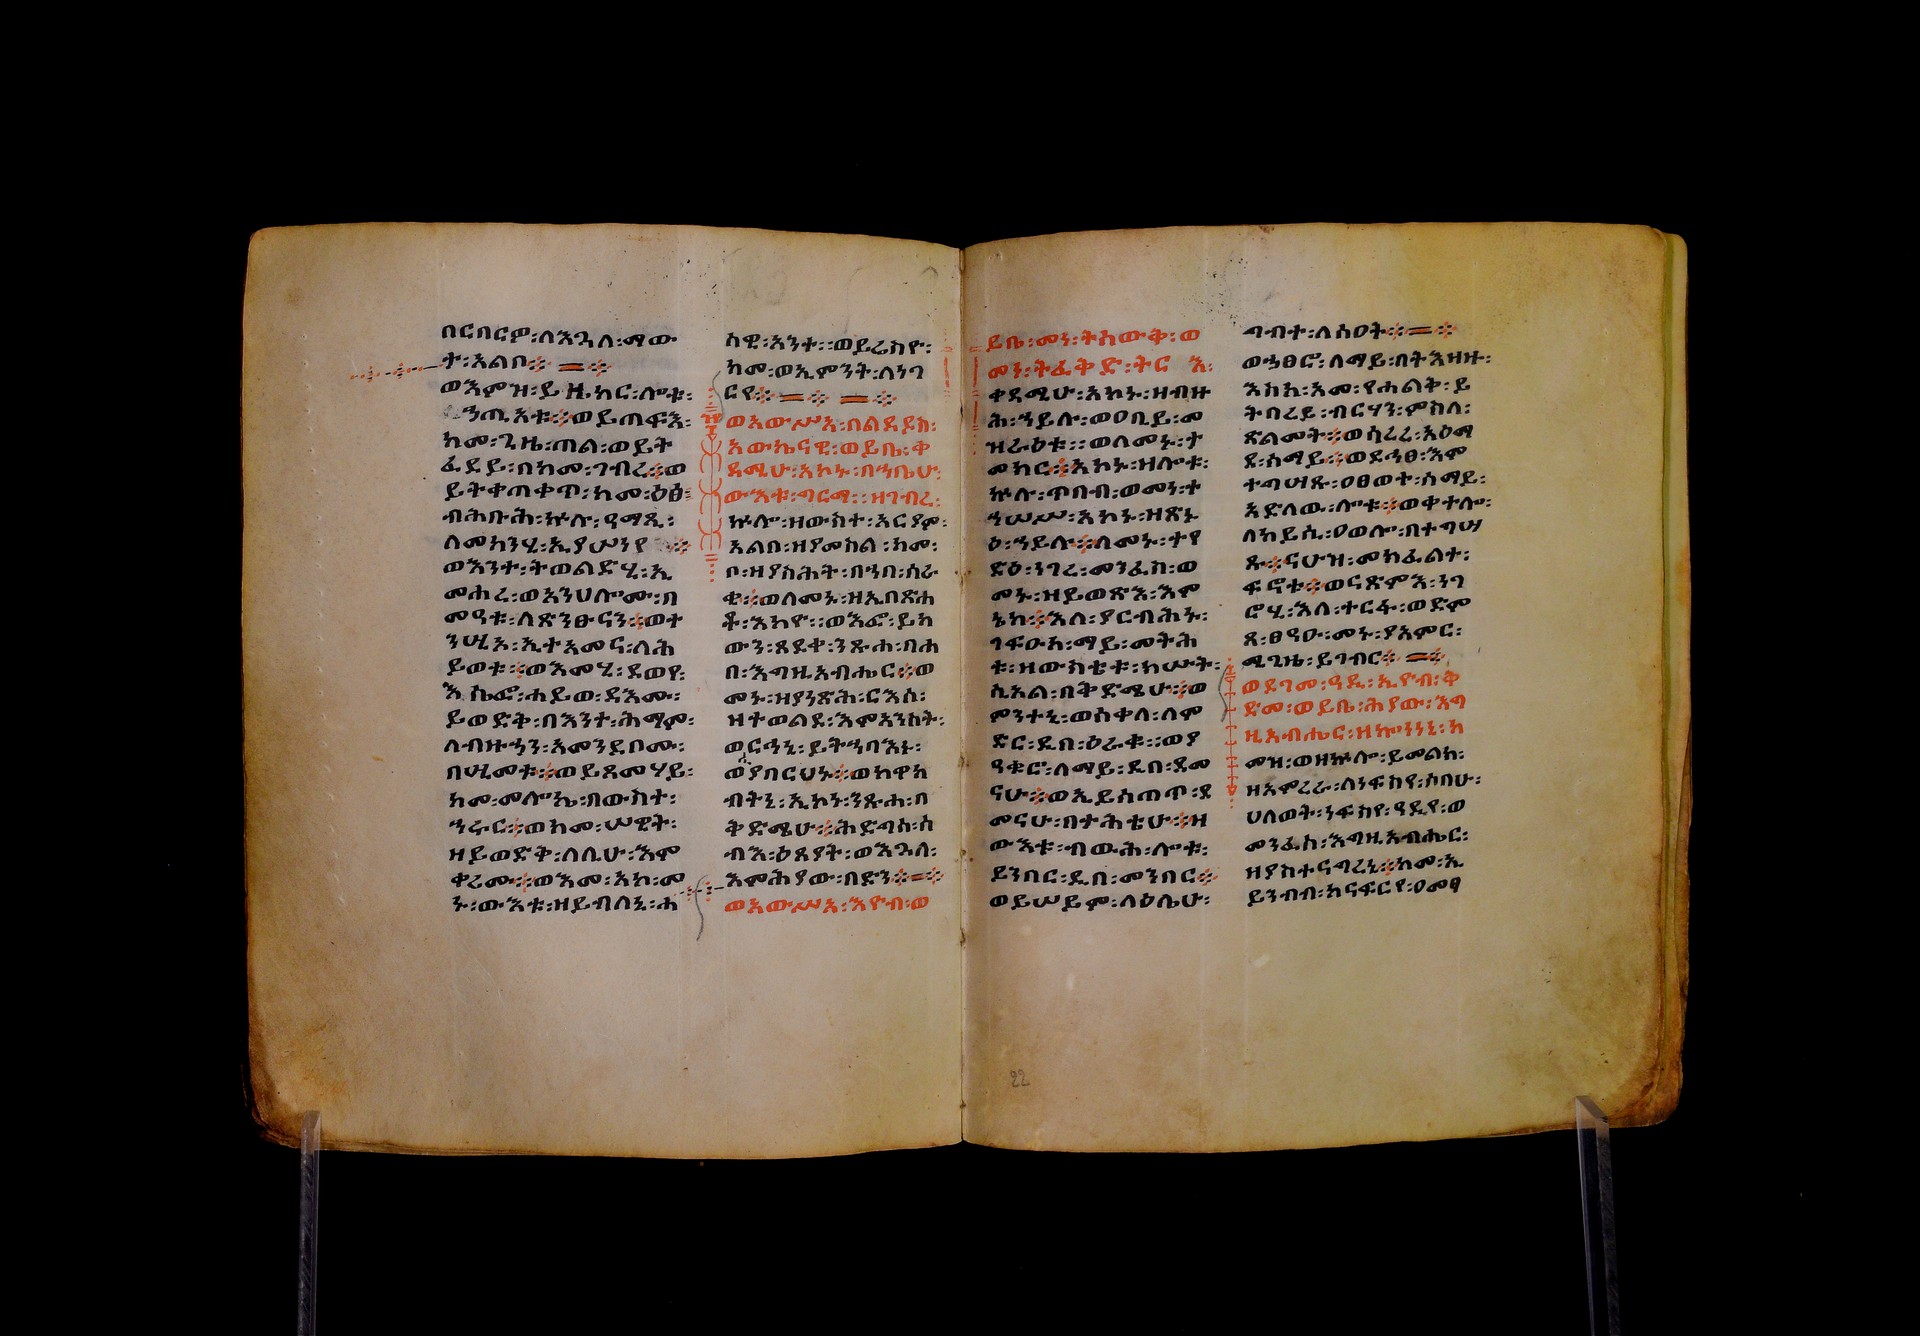 በርበርዎ፡ለእጓለ፡ማው
ት፡አልቦ፨ = ፨
ወእምዝ፡ይ ዚ ከር፡ሎቱ፡
ኀጢአቱ፨ወይጠፍእ፡
ከመ፡ጊዜ፡ጠል፡ወይት
ፈደይ፡በከመ፡ገብረ፨ወ
ይትቀጠቀጥ፡ከመ፡ዕፅ፡
ብሕቡሕ፡ኵሉ፡ዓማፂ፡
ለመካንሂ፡ኢያሠነየ ፨
ወእንተ፡ትወልድሂ፡ኢ
መሐረ፡ወአንህሎሙ፡በ
መዓቱ፡ለጽንፁናን፨ወተ
ንሢኦ፡ኢተአመና፡ለሕ
ይወቱ፨ወእመሂ፡ደወየ፡
ኢሴፎ፡ሐይወ፡ዳእሙ፡
ይወድቅ፡በእንተ፡ሕማም፡
ለብዙኃን፡አመንደቦሙ፡
በሢመቱ፨ወይጸመሃይ፡
ከመ፡መሎኬ፡በውስተ፡
ኀሩር፨ወከመ፡ሠዊት፡
ዘይወድቅ፡ለሊሁ፡እም
ቀሪሙ፨ወእመ፡አኮ፡መ
ኑ፡ውእቱ፡ዘይብለኒ፡ሐ
ስዊ፡አንተ፡፡ወይሬስዮ፡
ከመ፡ወኢምንት፡ለነገ
ርየ፨ = ፨ = ፨
ወአውሥአ፡በልዳዶስ፡
አውኬናዊ፡ወይቤ፡ቀ
ዳሚሁ፡አኮኑ፡በኀቤሁ፡
ውእቱ፡ግርማ፡፡ዘገብረ፡
ኵሎ፡ዘውስተ፡አርያም፡
አልቦ፡ዘያመስል፡ከመ፡
ቦ፡ዘያስሕት፡በኀበ፡ሰራ
ቂ፨ወለመኑ፡ዘኢበጽሐ
ቶ፡እከዮ፡፡ወእፎ፡ይከ
ውን፡ጻደቀ፡ንጹሐ፡በሐ
በ፡እግዚአብሔር፨ወ
መኑ፡ዘያንጽሕ፡ርእሰ፡
ዘተወልደ፡እምአንስት፡
ወርኃኒ፡ይትኃባእኑ፡
ወያበርህኑ፨ወከዋክ
ብትኒ፡ኢኮኑ፡ንጹሐ፡በ
ቅድሜሁ፨ሕድግሰ፡ሰ
ብእ፡ዕጸያት፡ወእጓለ፡
እምሕያው፡በድን፨=፨
ወአውሥአ፡ኢዮብ፡ወ
ይቤ፡መነ፡ትሰውቅ፡ወ
መነ፡ትፈቅድ፡ትር እ፡
ቀዳሚሁ፡አኮኑ፡ዘብዙ
ሕ፡ኀይሉ፡ወዐቢይ፡መ
ዝራዕቱ፡፡ወለመኑ፡ተ
መከር፨አኮኑ፡ዘሎቱ፡
ኵሉ፡ጥበብ፡ወመነ፡ተ
ኀሠሥ፡አኮኑ፡ዘጽኑ
ዕ፡ኀይሉ፨ለመኑ፡ተየ
ድዕ፡ነገረ፡መንፈስ፡ወ
መኑ፡ዘይወጽእ፡እም
ኔከ፨እለ፡ያርብሕኑ፡
ገፍዑከ፡ማይ፡መትሕ
ቱ፡ዘውስቴቱ፡ከሡት፡
ሲኦል፡በቅድሜሁ፨ወ
ምንተኒ፡ወስቀለ፡ለም
ድር፡ዲበ፡ዕራቁ፡፡ወያ
ዓቁሮ፡ለማይ፡ዲበ፡ደመ
ናሁ፨ወኢይሰጠጥ፡ደ
መናሁ፡በተሕቴሁ፨ዘ
ውእቱ፡ብውሕ፡ሎቱ፡
ይንበር፡ዲበ፡መንበር፨
ወይሠይም፡ላዕሌሁ፡
ግብተ፡ለሰዐት፨=፨
ወኃፀሮ፡ለማይ፡በትእዛዙ፡
እስከ፡አመ፡የሐልቅ፡ይ
ትበረይ፡ብርሃን፡ምስለ፡
ጽልመት፨ወሰረረ፡አዕማ
ደ፡ሰማይ፨ወደኃፀ፡እም
ተግሣጹ፡ዐፀወተ፡ሰማይ፡
አድለወ፡ሎቱ፨ወቀተሎ፡
ለከይሲ፡ዐወሎ፡በተግሣ
ጹ፨ናሁዝ፡መክፈልተ፡
ፍኖቱ፨ወናጽምእ፡ነገ
ሮሂ፡እለ፡ተርፋ፡ወድም
ጸ፡ፀዓዑ፡መኑ፡ያአምር፡
ሚጊዜ፡ይገብር፨=፨
ወደገመ፡ዓዲ፡ኢዮብ፡ቅ
ድመ፡ወይቤ፡ሕያው፡እግ
ዚአብሔር፡ዘኰነነኒ፡ከ
መዝ፡ወዘኵሎ፡ይመልክ፡
ዘአምረራ፡ለነፍስየ፡ሶበሁ፡
ሀለወት፡ነፍስየ፡ዓዲየ፡ወ
መንፈስ፡እግዚአብሔር፡
ዘያስተናግረኒ፨ከመ፡ኢ
ይንብብ፡ከናፍርየ፡ዐመፃ
22